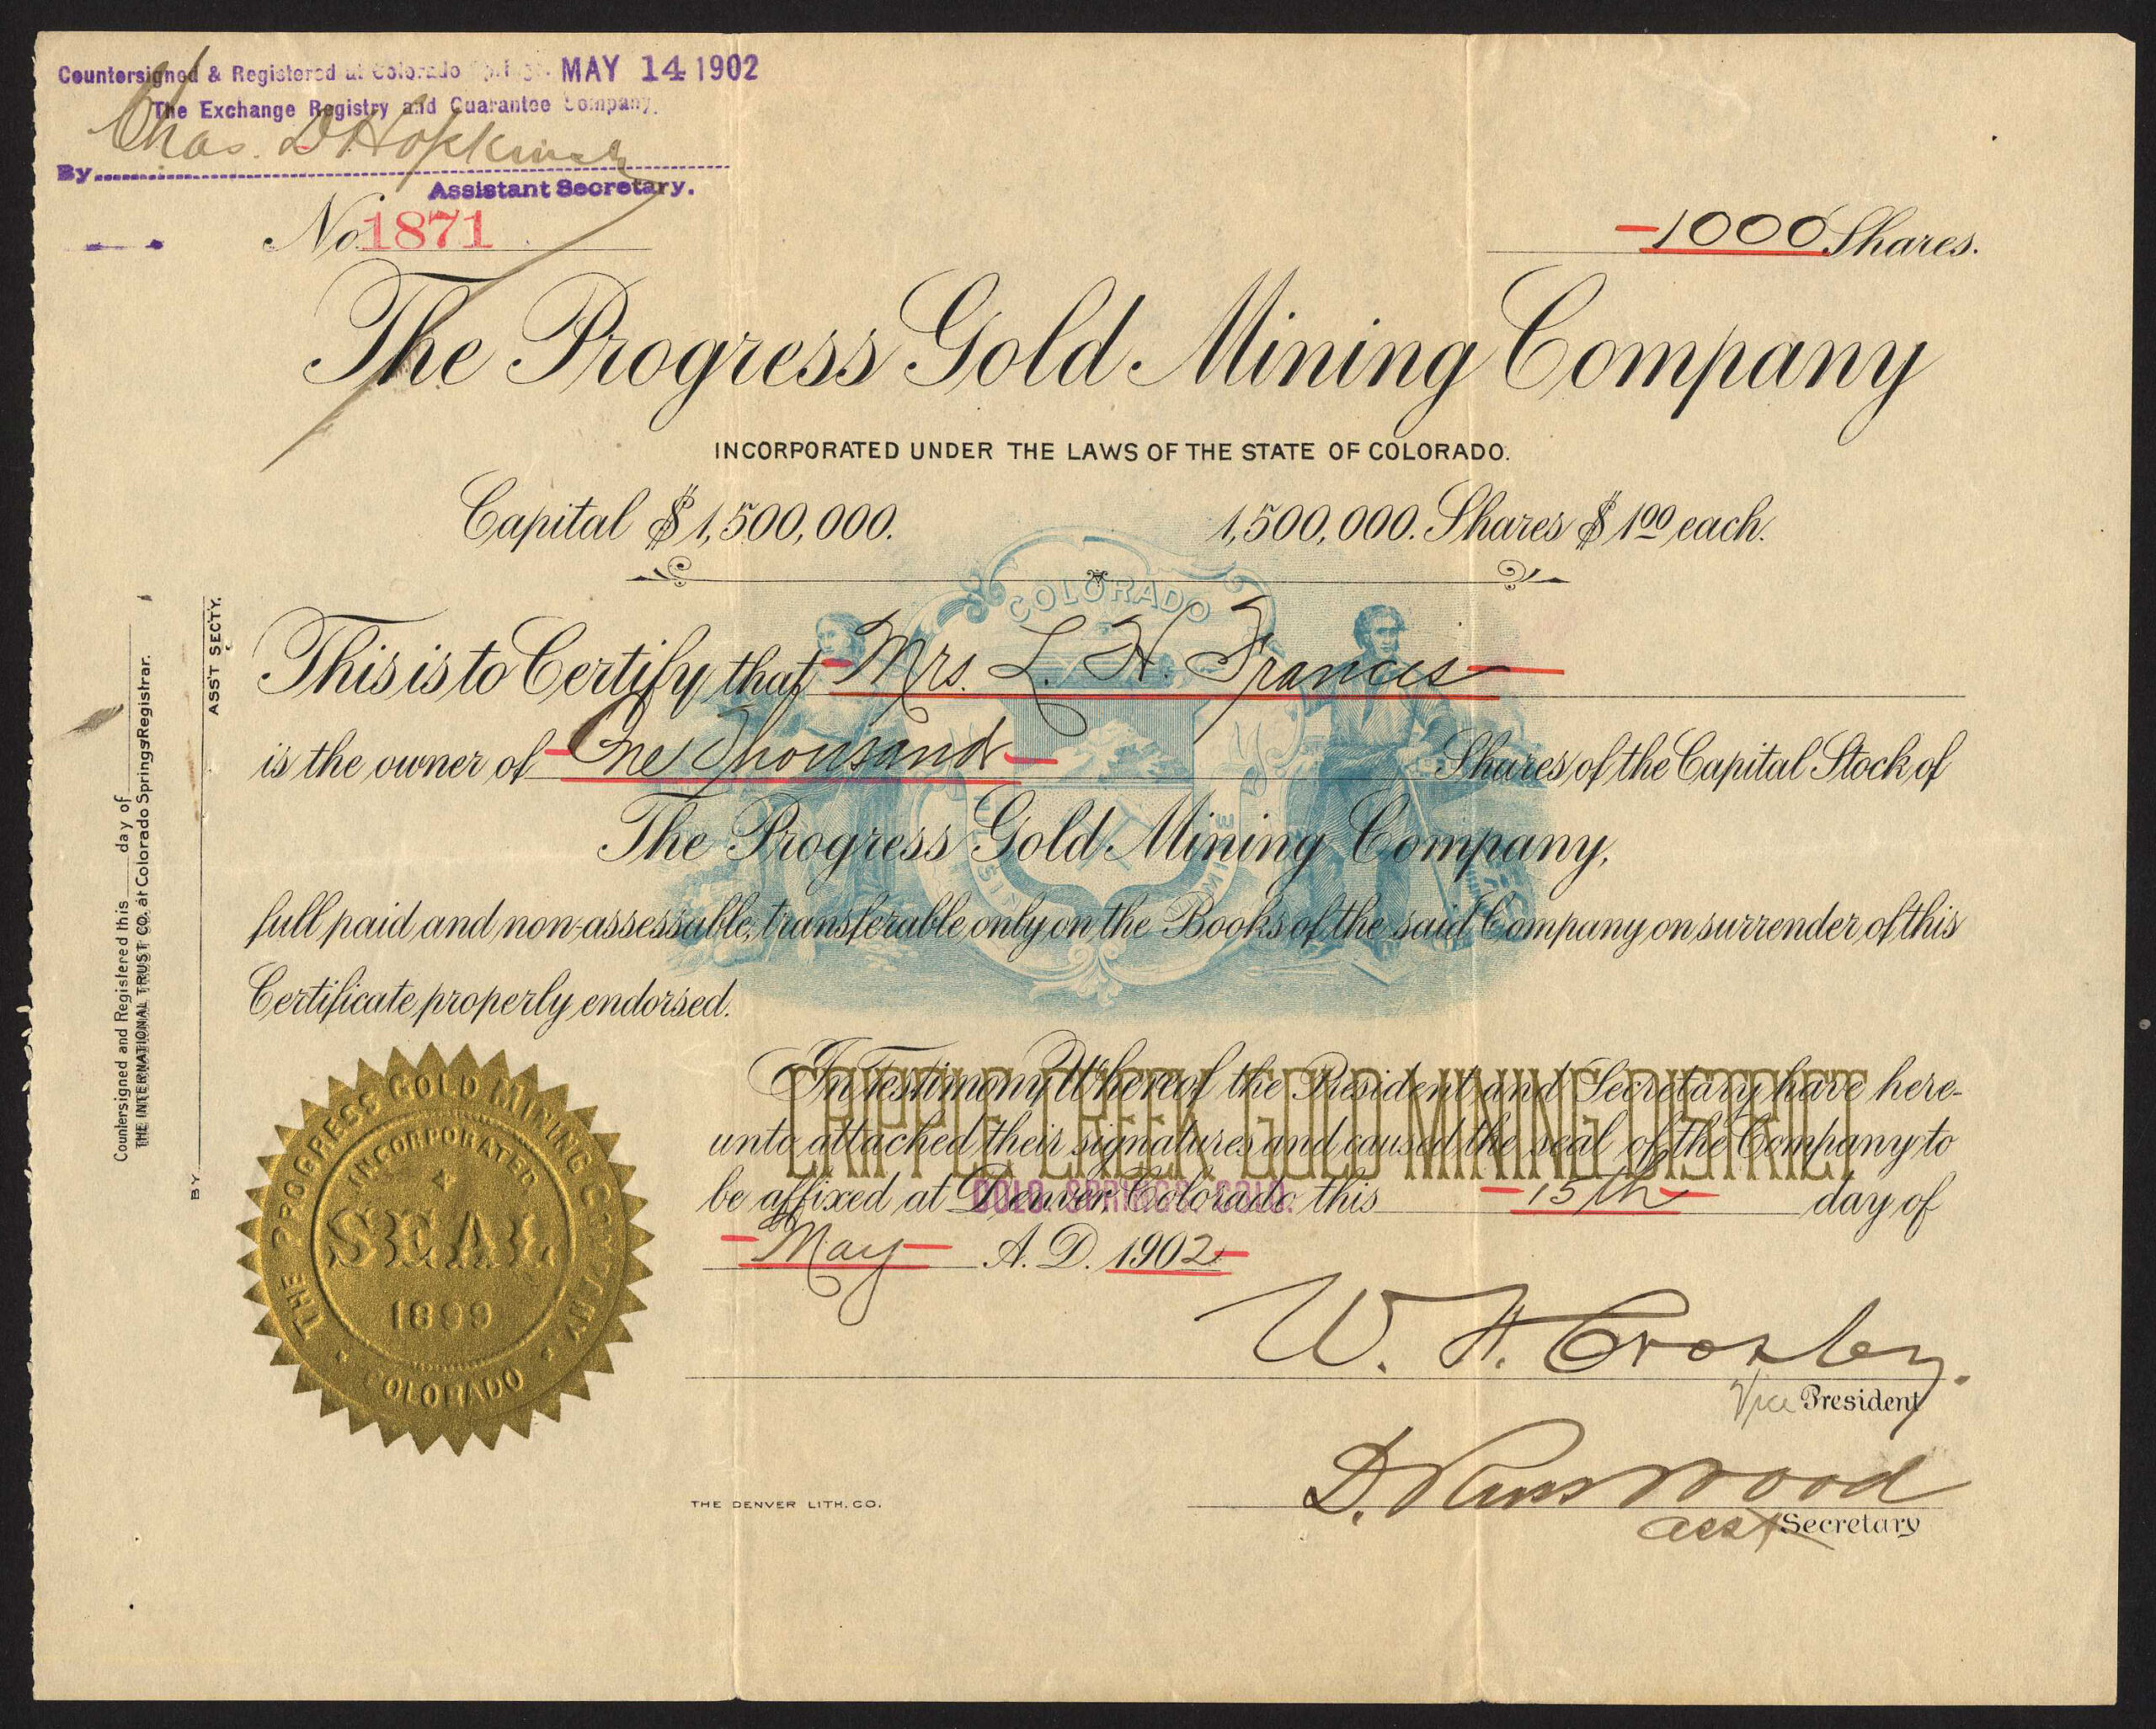 Countersigned & Registered at Colorado Sp'gs. MAY 14 1902
The Exchange Registry and Guarantee Company.
Chas. D. Hopkins
By
Assistant Secretary.
No. 1871
-1000 Shares.
The Progress Gold Mining Company
INCORPORATED UNDER THE LAWS OF THE STATE OF COLORADO.
Capital $1,500,000. 1,500,000. Shares $1.00 each.
COLORADO
This is to Certify that - Mrs. L. H. Francis -
is the owner of - One Thousand - Shares of the Capital Stock of
The Progress Gold Mining Company,
full paid and non-assessable, transferable only on the Books of the said Company on surrender of this
Certificate properly endorsed.
In Testimony Whereof the President and Secretary have here-
unto attached their signatures and caused the seal of the Company to
be affixed at Denver, Colorado this -15th- day of
- May - A.D. 1902 -
CRIPPLE CREEK GOLD MINING DISTRICT
COLO. SPRINGS, COLO.
W. H. Crosley.
Vice President
Wood
asst Secretary
THE DENVER LITH. CO.
THE PROGRESS GOLD MINING COMPANY
INCORPORATED
SEAL
1899
COLORADO
Countersigned and Registered this day of
THE INTERNATIONAL TRUST CO. at Colorado Springs Registrar.
BY ASS'T SECTY.